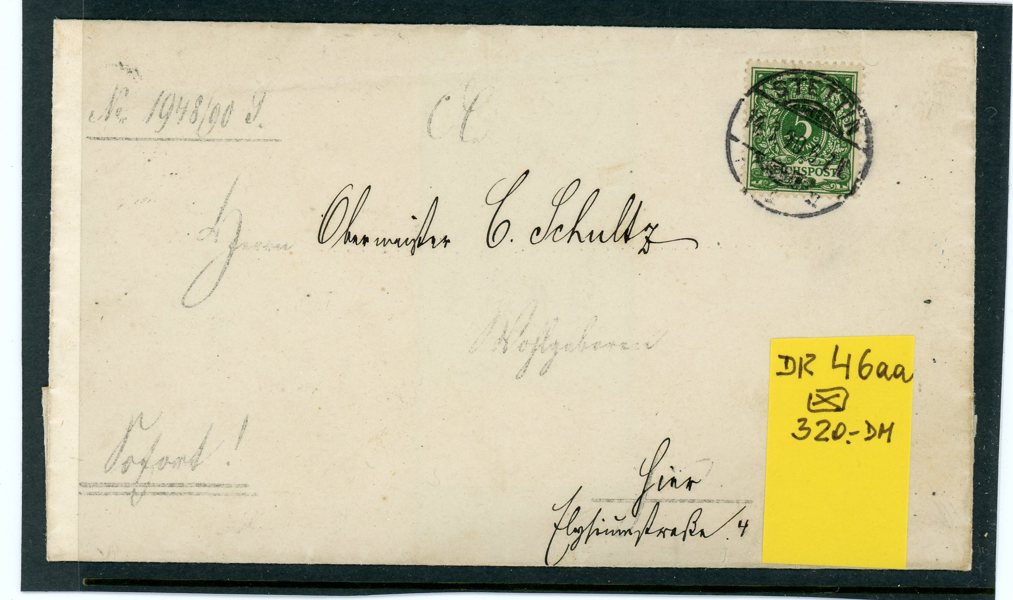 No 1948/90 J.
STETTIN
5
REICHSPOST
Herrn Obermeister C. Schultz
Wohlgeboren
DR 46aa
320.-DM
Sofort!
Hier
Elysiumstraße 4